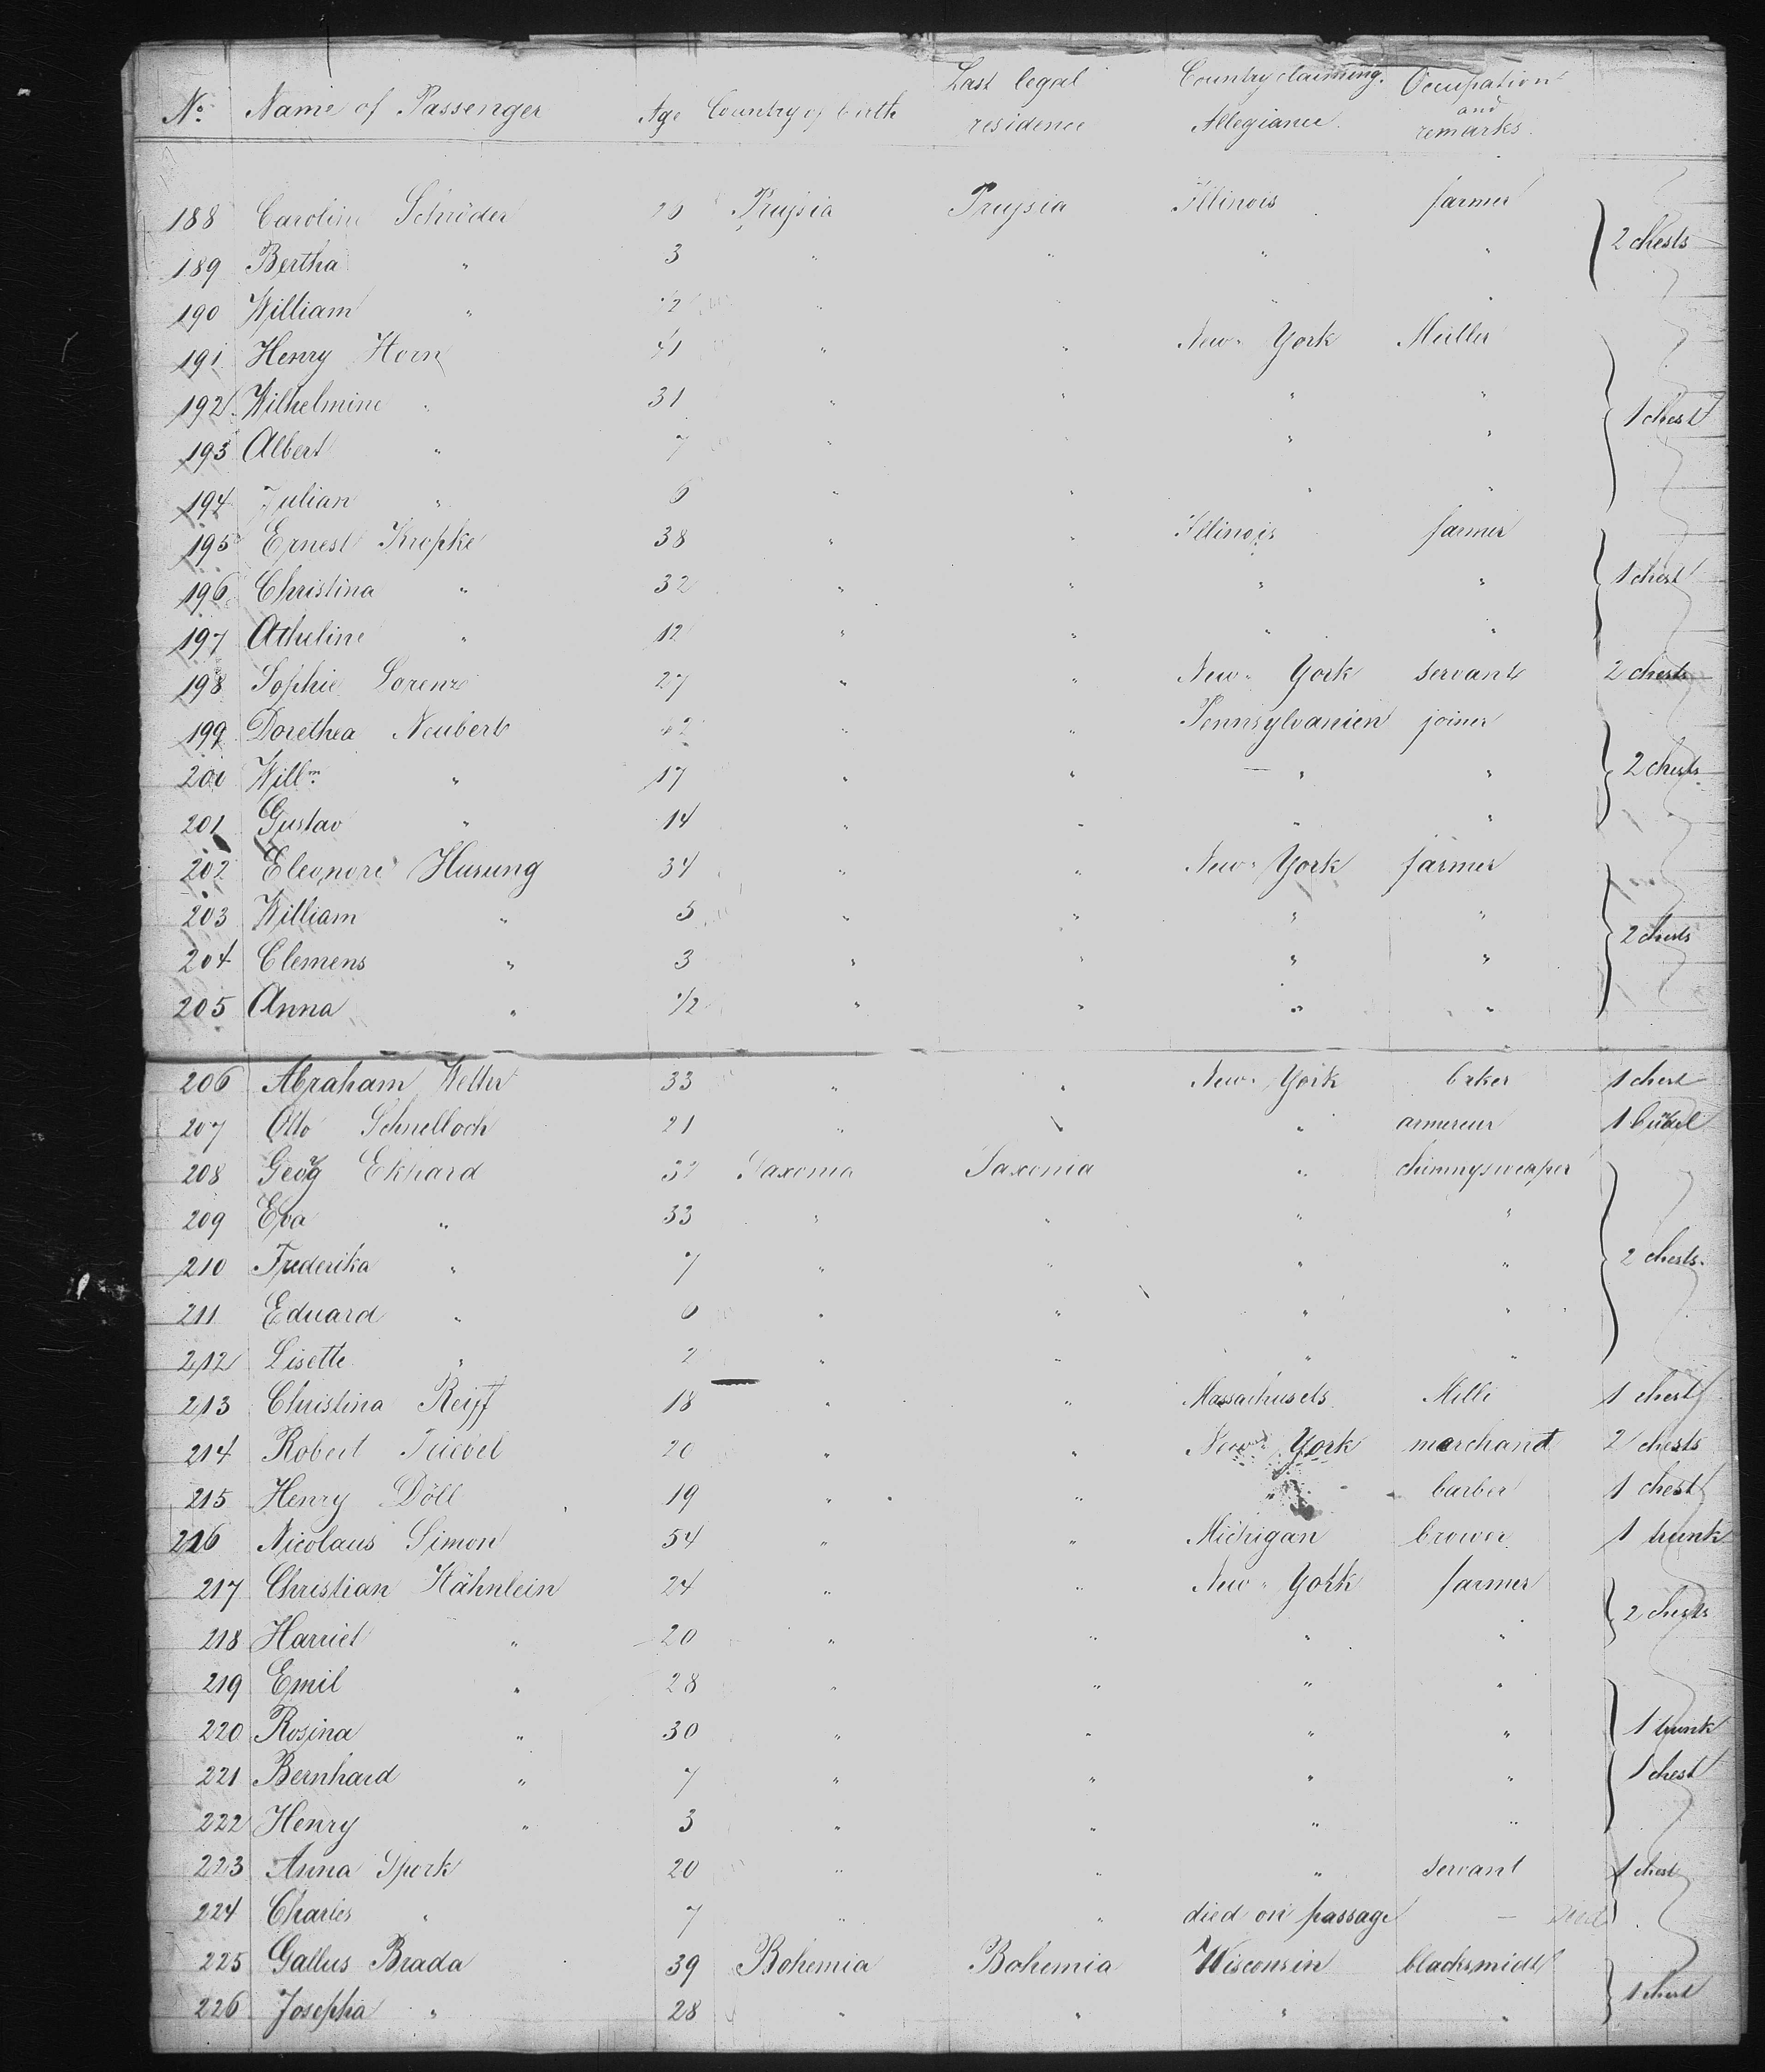 No. Name of Passenger Age Country of birth Last legal residence Country claiming Allegiance. Occupation and remarks.
188 Caroline Schröder 26 Prussia Prussia Illinois farmer
189 Bertha " 3 " " " " 2 chests
190 William " 1/2 " " " "
191 Henry Horn 41 " " New-York Müller
192 Wilhelmine " 31 " " " "
193 Albert " 7 " " " " 1 chest
194 Julian " 6 " " " "
195 Ernest Kropke 38 " " Illinois farmer
196 Christina " 32 " " " " 1 chest
197 Atheline " 12 " " " "
198 Sophie Lorenz 27 " " New-York servant 2 chests
199 Dorethea Neubert " " Pennsylvanien joiner
200 Willm " 17 " " " " 2 chests
201 Gustav " 14 " " " "
202 Eleonore Husung 34 " " New-York farmer
203 William " 5 " " " "
204 Clemens " 3 " " " " 2 chests
205 Anna " 1/2 " " " "
206 Abraham 33 " " New-York baker 1 chest
207 Otto Schnelloch 21 " " " armureur 1
208 Georg Ekhard 32 Saxonia Saxonia " chimnysweaper
209 Eva " 33 " " " "
210 Frederika " 7 " " " " 2 chests.
211 Eduard " 6 " " " "
212 Lisette " 2 " " " "
213 Christina Reiff 18 " " Massachusets Milli 1 chest
214 Robert Triebel 20 " " New-York marchand 2 chests
215 Henry Döll 19 " " " barber 1 chest
216 Nicolaus Simon 54 " " Michigan brower 1 trunk
217 Christian Hähnlein 24 " " New-York farmer
218 Harriet " 20 " " " " 2 chests
219 Emil " 28 " " " "
220 Rosina " 30 " " " " 1 trunk
221 Bernhard " 7 " " " " 1 chest
222 Henry " 3 " " " "
223 Anna Spork 20 " " " servant 1 chest
224 Charles " 7 " " died on passage — died
225 Gallus Brada 39 Bohemia Bohemia Wisconsin blacksmidt
226 Josepha " 28 " " " " 1 chest